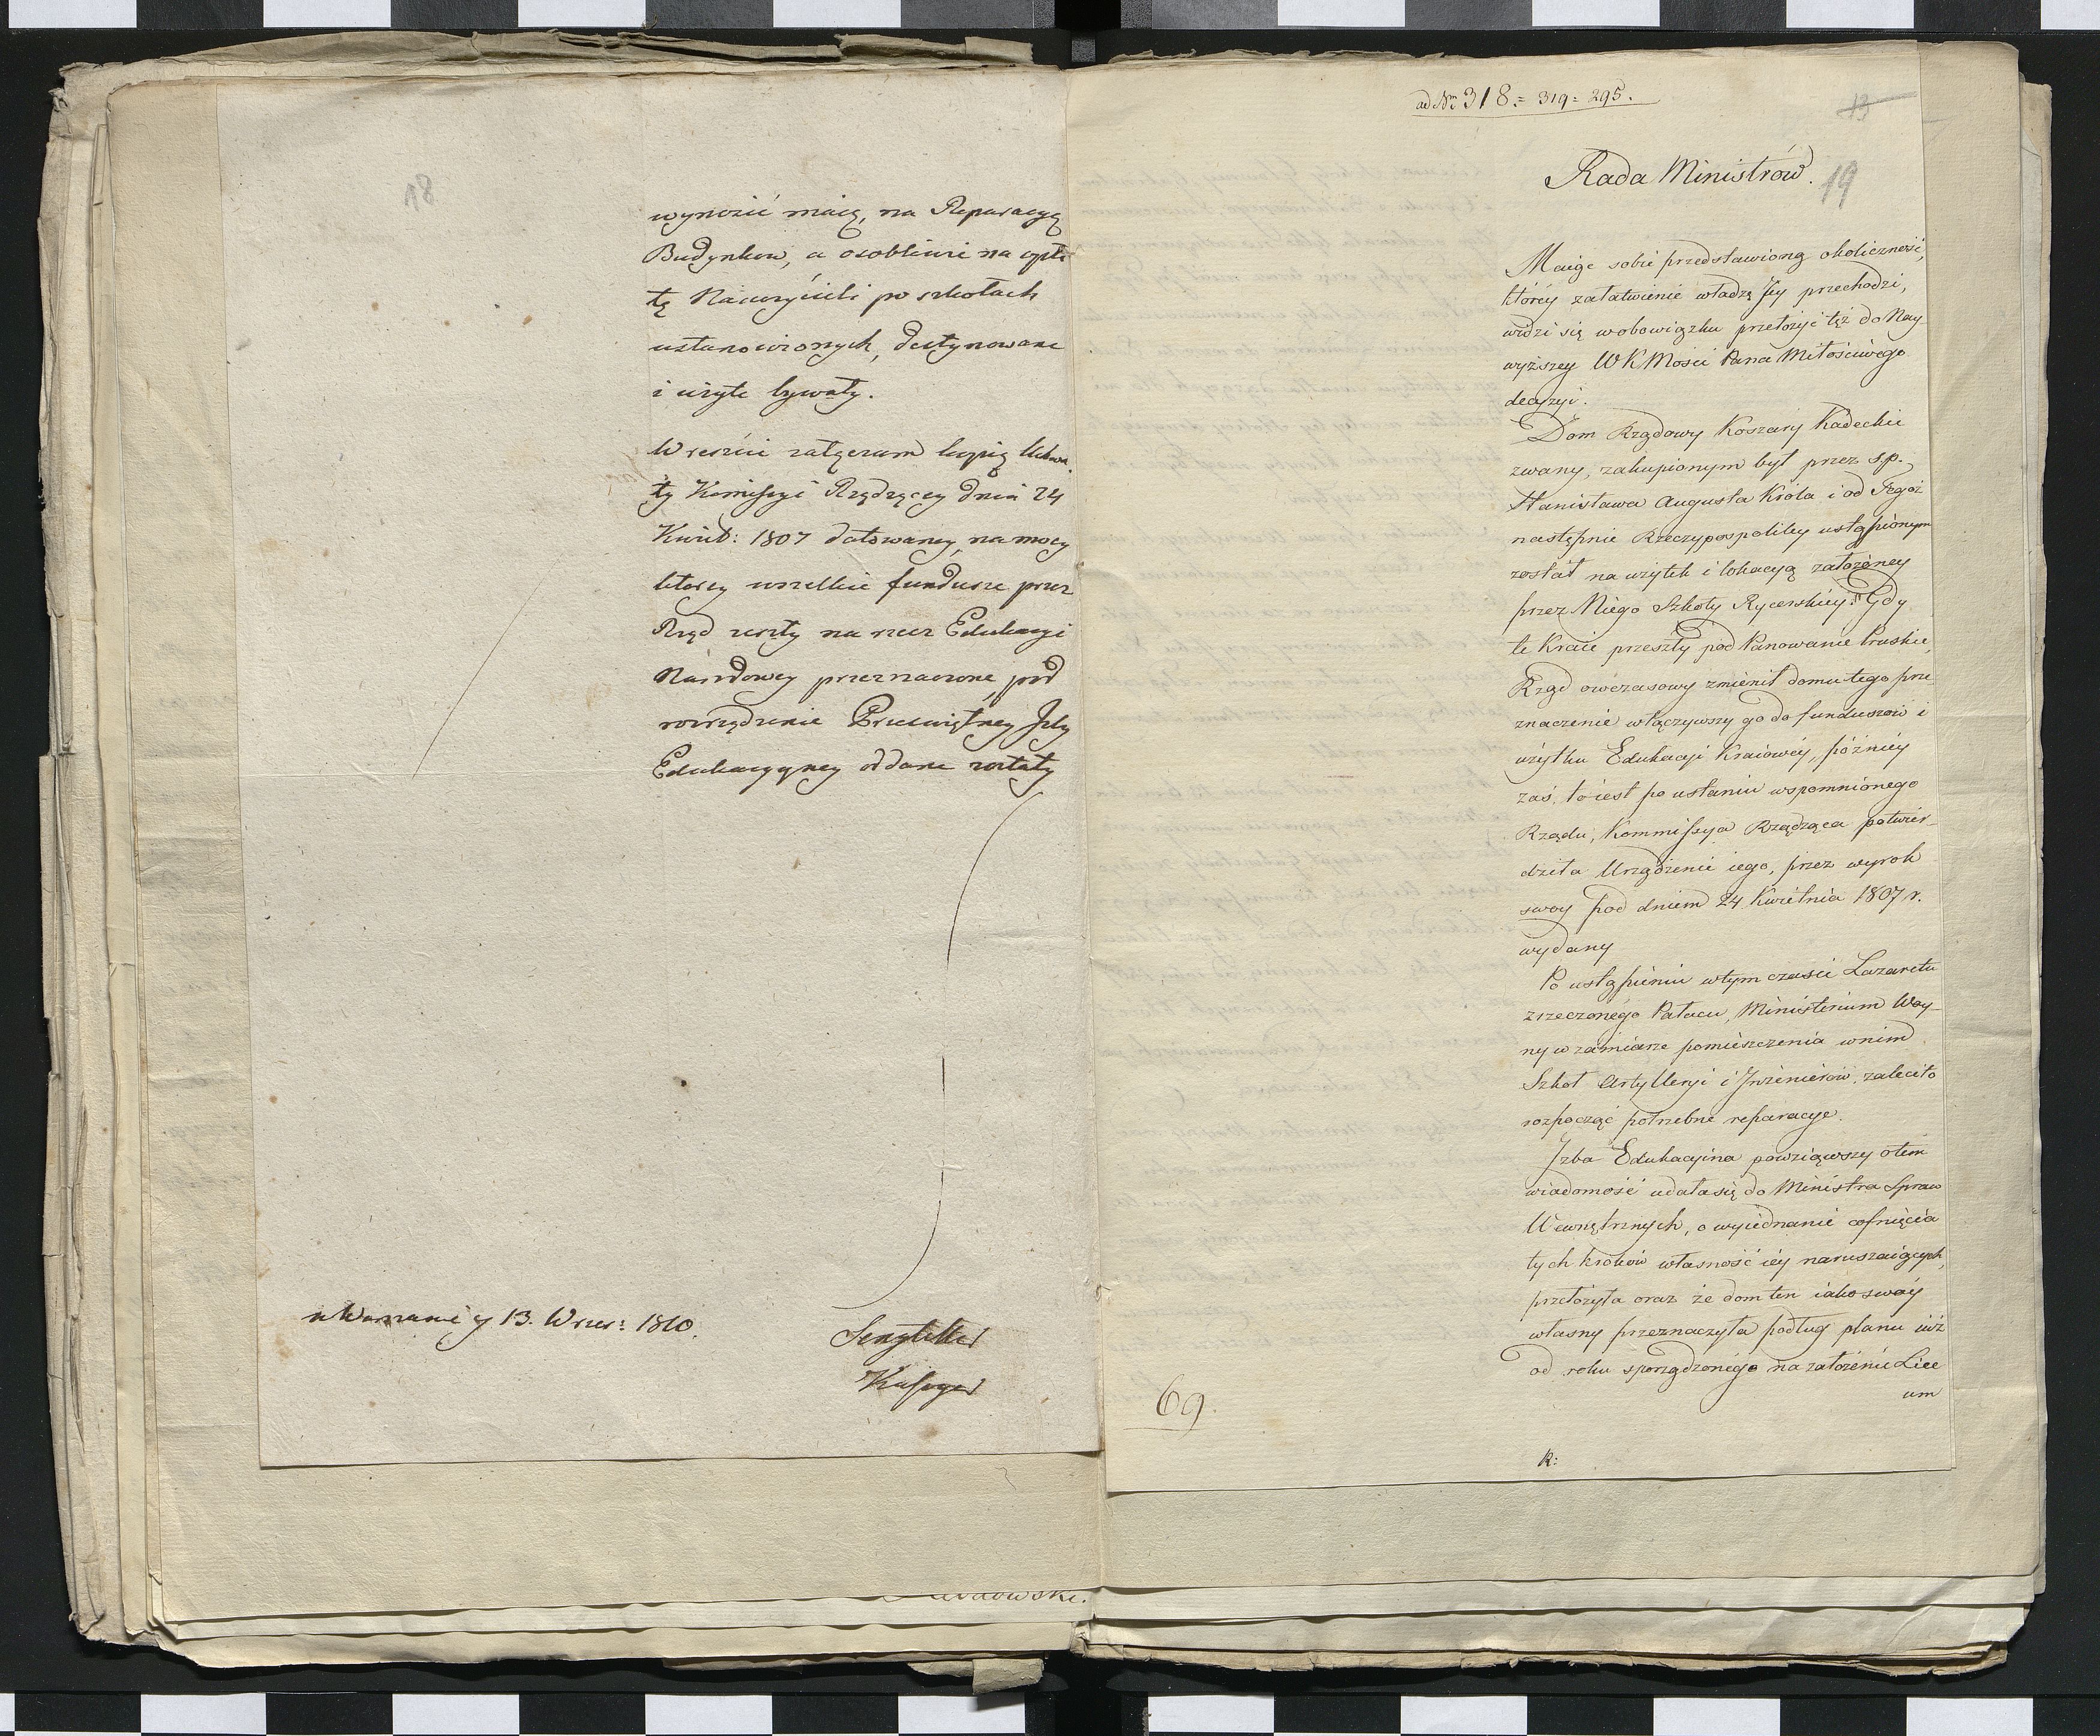 18
wynosić maią, na Reparacyą
Budynkow, a osobliwie na opła
tę Nauczycieli po szkołach
ustanowionych, destynowane
i użyte bywały.
W reszcie załączam kopią Uchwa
ły Komissyi Rządzącey dnia 24
Kwiet: 1807 datowaney, na mocy
ktorey wszelkie fundusze przez
Rząd zeszły na rzecz Edukacyi
Narodowey przeznaczone, pod
rozrządzenie Prześwietney Izby
Edukacyyney oddane zostały
w Warszawie y 13. Wrześ: 1810.
ad Nm 318 = 319 = 295.
13
Rada Ministrów.
19
Maiąc sobie przedstawioną okoliczność,
którey załatwienie władzę Jey przechodzi,
widzi się w obowiązku przełożyć też do Nay-
wyższey WKMości Pana Miłościwego
decyzyi.
Dom Rządowy Koszary Kadeckie
zwany, zakupionym był przez s.p.
Stanisława Augusta Króla i od Tegoż
następnie Rzeczypospolitey ustąpionym
został na użytek i lokacyą założoney
przez Niego Szkoły Rycerskiey. Gdy
te Kraie przeszły pod Panowanie Pruskie,
Rząd owczasowy zmienił domu tego prze-
znaczenie włączywszy go do funduszów i
użytku Edukacyi Kraiowey, późniey
zaś, to iest po ustaniu wspomnionego
Rządu, Kommissya Rządząca potwier-
dziła Urządzenie iego, przez wyrok
swoy pod dniem 24 Kwietnia 1807 r.
wydany
Po ustąpieniu w tym czasie Lazaretu
z rzeczonego Pałacu, Ministerium Woy-
ny w zamiarze pomieszczenia w nim
Szkoł Artylleryi i Inżenierów, zaleciło
rozpocząć potrzebne reparacye.
Izba Edukacyina powziąwszy o tem
wiadomość udała się do Ministra Spraw
Wewnętrznych, o wyiednanie cofnięcia
tych kroków własność iey naruszaiących,
przełożyła oraz że dom ten iako swóy
własny przeznaczyła podług planu iuż
od roku sporządzonego na założenie Lice
um
69.
R: